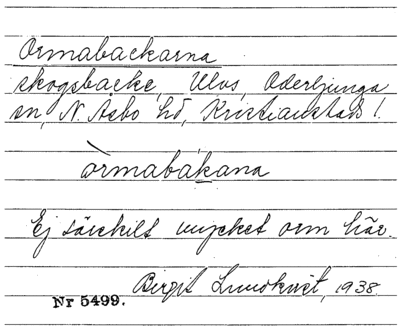 Ormabackarna
skogsbacke, Ulvs, Oderljunga
sn, N. Åsbo hd, Kristianstads l.
òrmabákana
Ej särskilt mycket orm här.
Birgit Lundkvist, 1938.
Nr 5499.